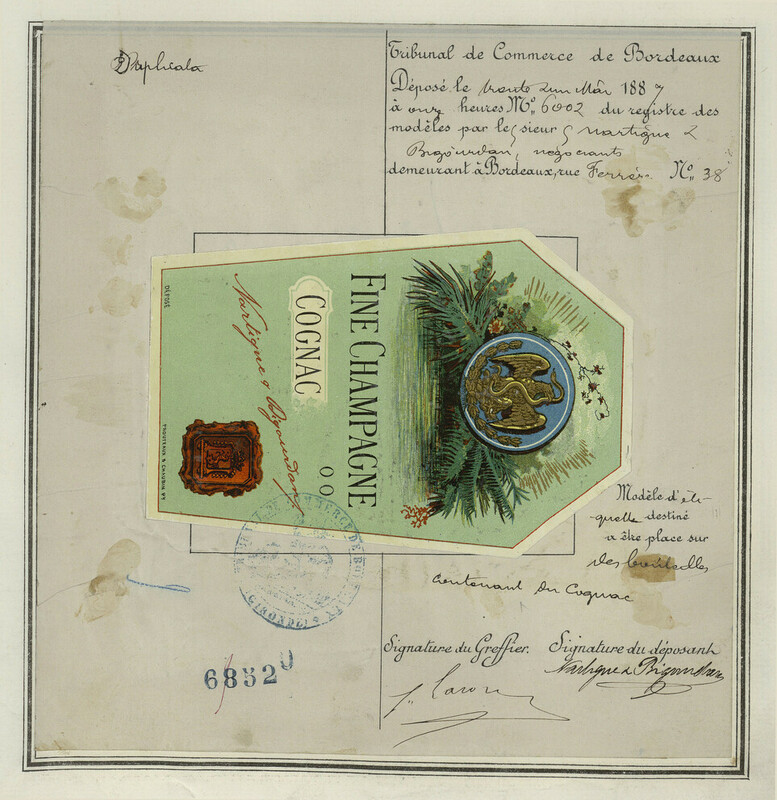 Duplicata
Tribunal de Commerce de Bordeaux
Déposé le trente un Mai 1887
à onze heures No. 6002 du registre des
modèles par les sieurs Nartigue &
Bigourdan, négociants
demeurant à Bordeaux, rue Ferrère No. 38
FINE CHAMPAGNE
COGNAC
00
Nartigue & Bigourdan
DÉPOSÉ
Modèle d'éti-
quette destiné
a être place sur
des bouteilles
contenant du Cognac
COMMERCE DE
GIRONDE
Signature du Greffier. Signature du déposant
Nartigue & Bigourdan
68520